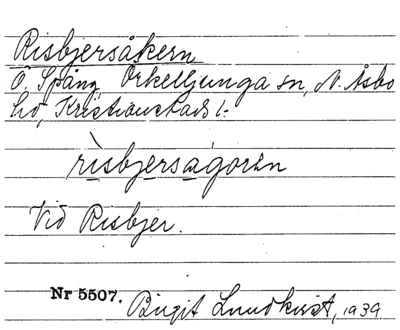 Risbjersåkern
Ö. Spång, Örkelljunga sn, N. Åsbo
hd, Kristianstads l.
Vid Risbjer.
Nr 5507. Birgit Lundkvist, 1939.